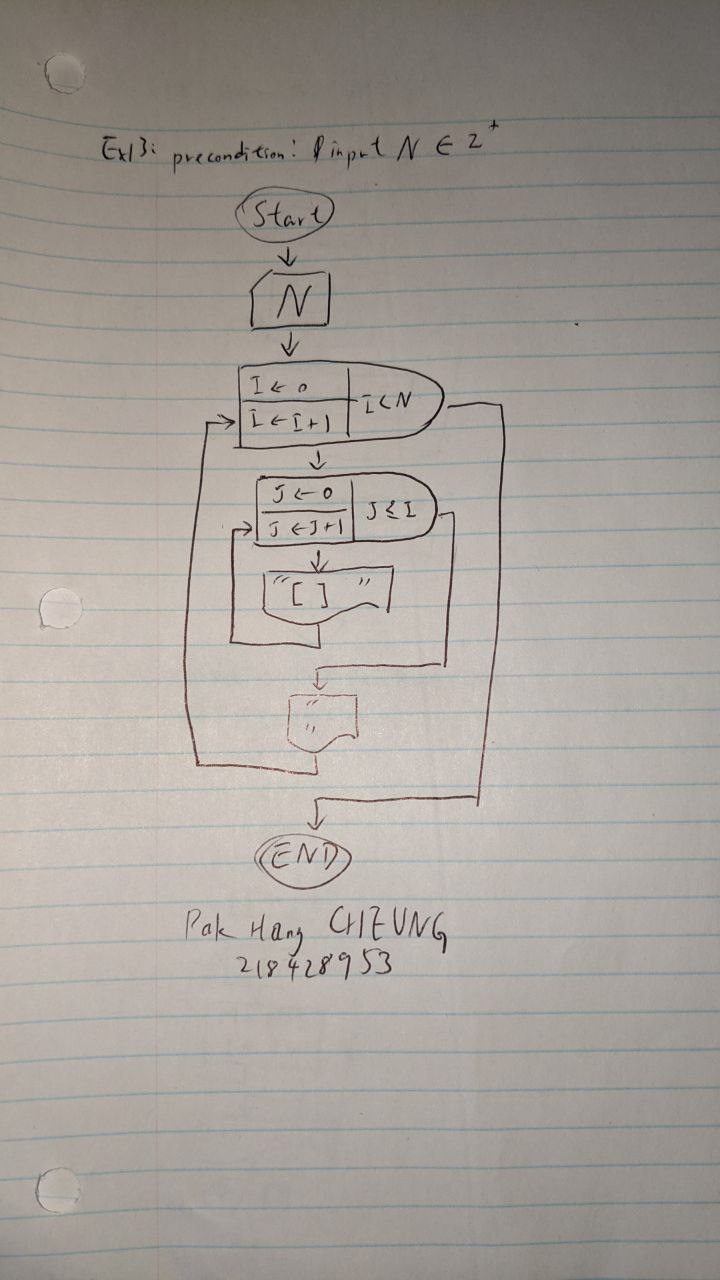 Ex13: precondition: input N ∈ Z⁺
Start
N
I ← 0
I ← I+1
I < N
J ← 0
J ← J+1
J ≤ I
"[ ] "
"
"
END
Pak Hang CHEUNG
218428953